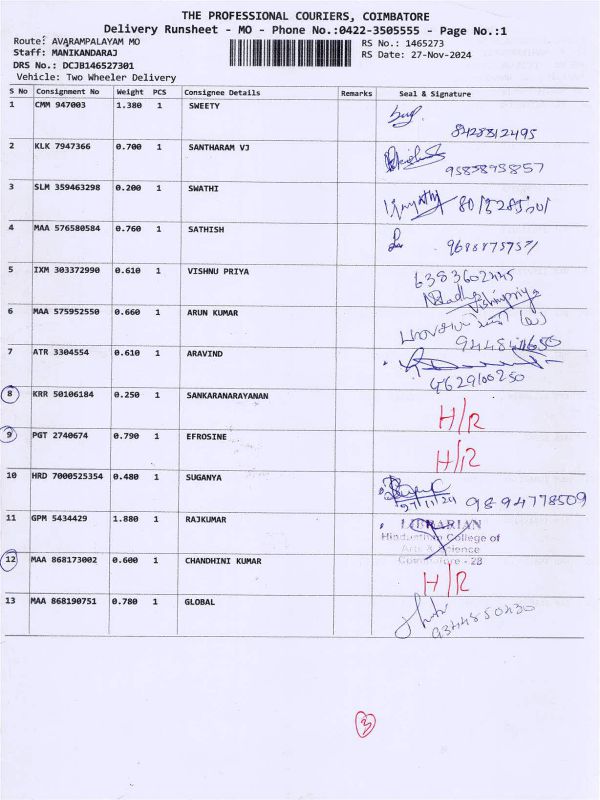 THE PROFESSIONAL COURIERS, COIMBATORE
Delivery Runsheet - MO - Phone No.:0422-3505555 - Page No.:1
Route: AVARAMPALAYAM MO
Staff: MANIKANDARAJ
DRS No.: DCJB146527301
Vehicle: Two Wheeler Delivery
RS No.: 1465273
RS Date: 27-Nov-2024
S No Consignment No Weight PCS Consignee Details Remarks Seal & Signature
1 CMM 947003 1.380 1 SWEETY
8428812495
2 KLK 7947366 0.700 1 SANTHARAM VJ
9585895857
3 SLM 359463298 0.200 1 SWATHI
4 MAA 576580584 0.760 1 SATHISH
5 IXM 303372990 0.610 1 VISHNU PRIYA
6383602445
Vishnupriya
6 MAA 575952550 0.660 1 ARUN KUMAR
7 ATR 3304554 0.610 1 ARAVIND
8 KRR 50106184 0.250 1 SANKARANARAYANAN H/R
9 PGT 2740674 0.790 1 EFROSINE H/R
10 HRD 7000525354 0.480 1 SUGANYA
27/11/24 9894778509
11 GPM 5434429 1.880 1 RAJKUMAR
LIBRARIAN
Hindusthan College of
Arts & Science
Coimbatore - 28
12 MAA 868173002 0.600 1 CHANDHINI KUMAR H/R
13 MAA 868190751 0.780 1 GLOBAL
9344850430
3